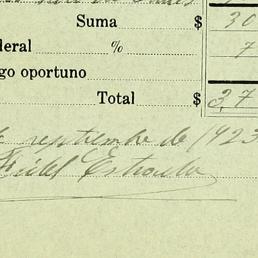 Suma $ 30
deral % 7
go oportuno
Total $ 37
septiembre de 1923
Fidel Estrada